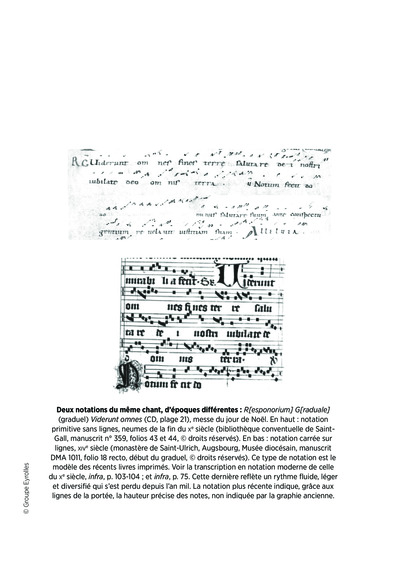 R G Uiderunt om nes fines terre salutare de i nostri
iubilate deo om nis terra. Notum fecit do
salutare suum ante conspectu
gentium re velauit iustitiam suam. Alleluia
Uiderunt
om nes fi nes ter re salu
ta re de i nostri iubilate de
o om nis ter ra.
Notum fe cit do
Deux notations du même chant, d'époques différentes : R[esponorium] G[raduale]
(graduel) Viderunt omnes (CD, plage 21), messe du jour de Noël. En haut : notation
primitive sans lignes, neumes de la fin du Xe siècle (bibliothèque conventuelle de Saint-
Gall, manuscrit n° 359, folios 43 et 44, © droits réservés). En bas : notation carrée sur
lignes, XIVe siècle (monastère de Saint-Ulrich, Augsbourg, Musée diocésain, manuscrit
DMA 1011, folio 18 recto, début du graduel, © droits réservés). Ce type de notation est le
modèle des récents livres imprimés. Voir la transcription en notation moderne de celle
du Xe siècle, infra, p. 103-104 ; et infra, p. 75. Cette dernière reflète un rythme fluide, léger
et diversifié qui s'est perdu depuis l'an mil. La notation plus récente indique, grâce aux
lignes de la portée, la hauteur précise des notes, non indiquée par la graphie ancienne.
© Groupe Eyrolles